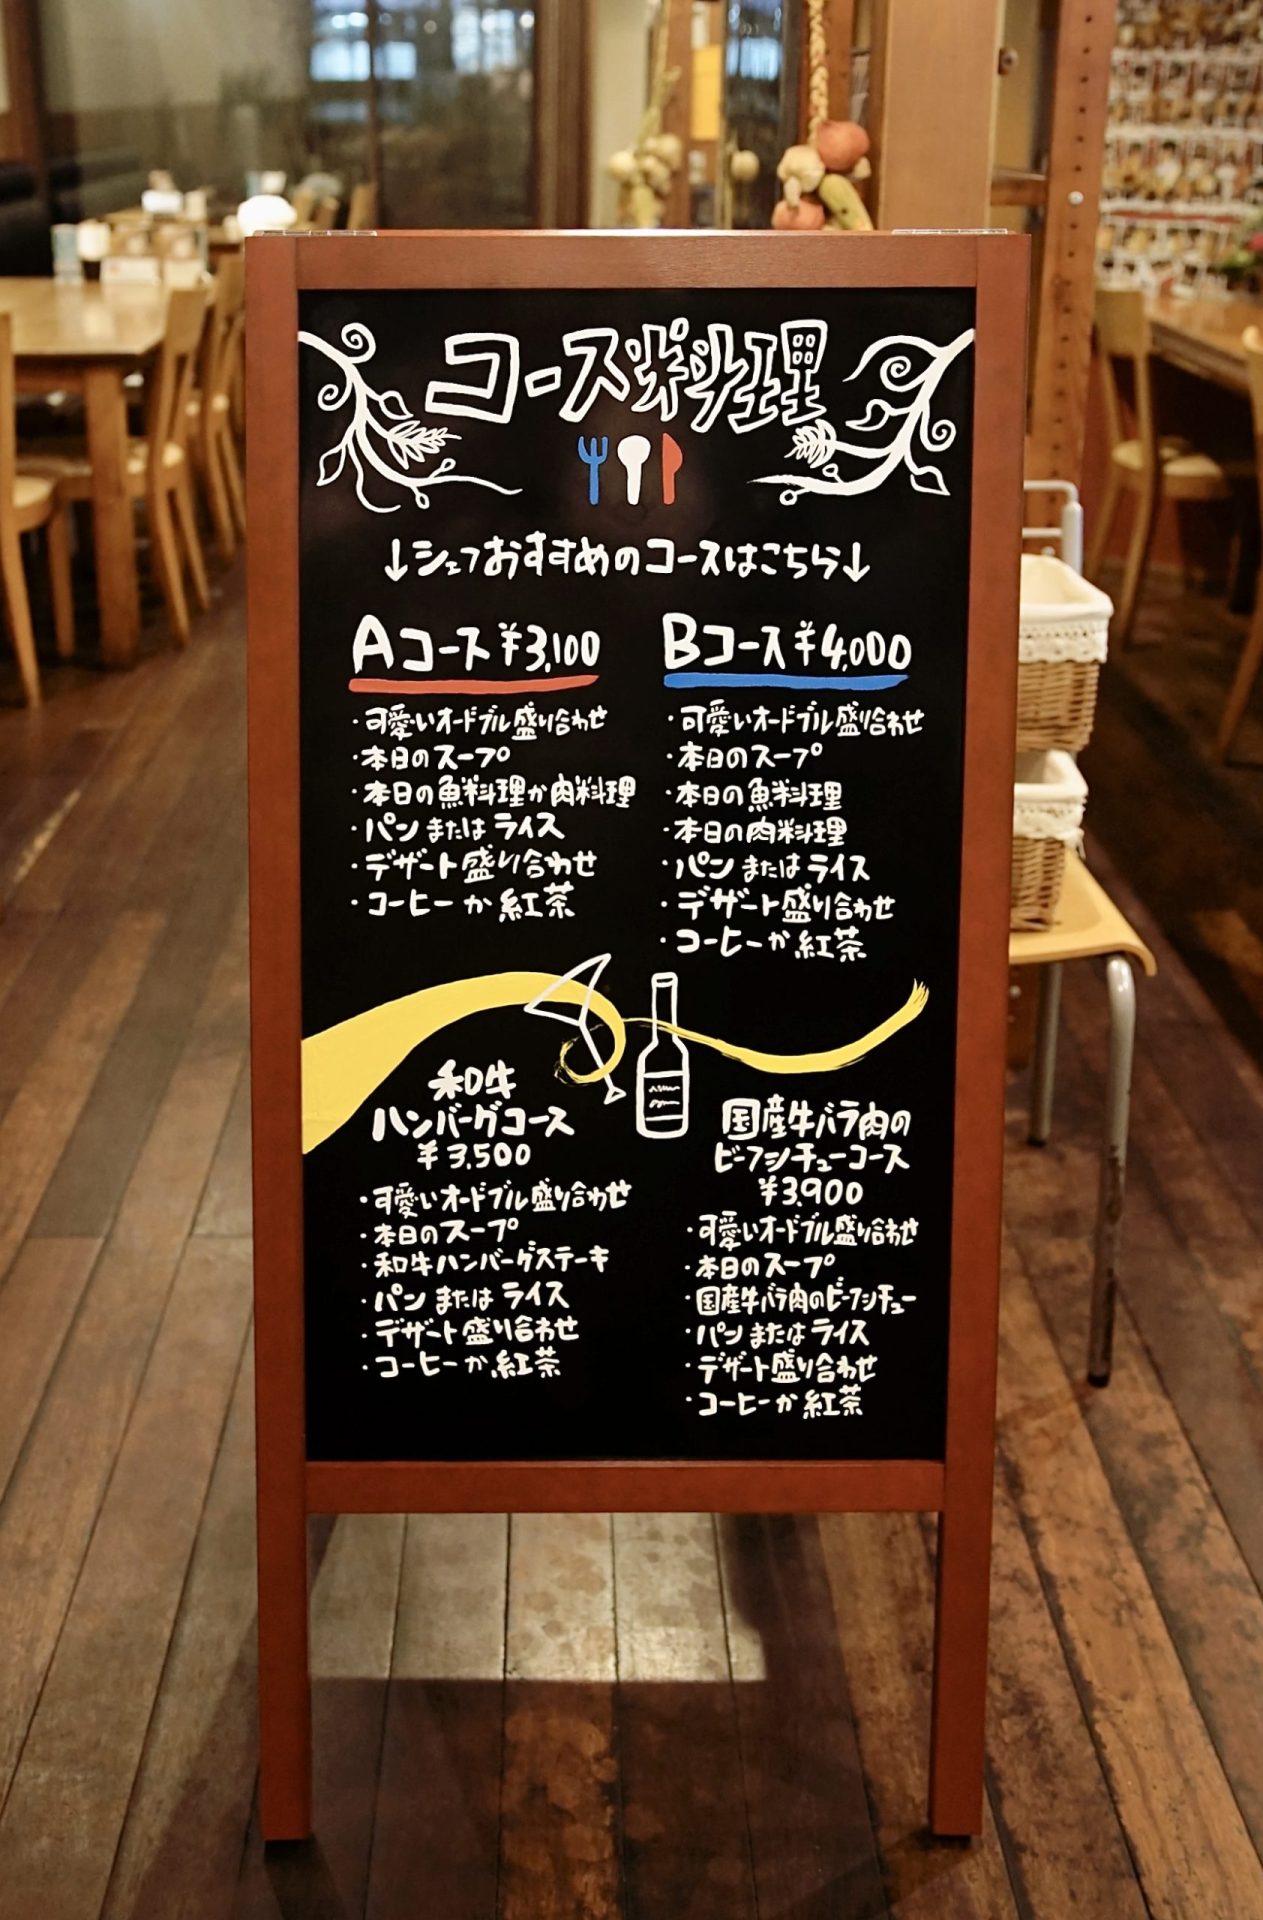 コース料理
↓シェフおすすめのコースはこちら↓
Aコース ¥3,100
・可愛いオードブル盛り合わせ
・本日のスープ
・本日の魚料理か肉料理
・パンまたはライス
・デザート盛り合わせ
・コーヒーか紅茶
Bコース ¥4,000
・可愛いオードブル盛り合わせ
・本日のスープ
・本日の魚料理
・本日の肉料理
・パンまたはライス
・デザート盛り合わせ
・コーヒーか紅茶
和牛
ハンバーグコース
¥3,500
・可愛いオードブル盛り合わせ
・本日のスープ
・和牛ハンバーグステーキ
・パンまたはライス
・デザート盛り合わせ
・コーヒーか紅茶
国産牛バラ肉の
ビーフシチューコース
¥3,900
・可愛いオードブル盛り合わせ
・本日のスープ
・国産牛バラ肉のビーフシチュー
・パンまたはライス
・デザート盛り合わせ
・コーヒーか紅茶